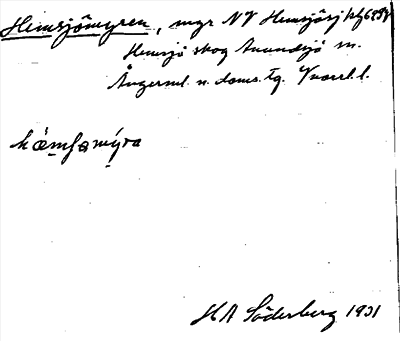 Hemsjömyren, myr NV Hemsjösj
Hemsjö skog Anundsjö sn.
Ångerml. n. doms. tg. Vnorrl. l.
hámsamýra
HA Söderberg 1931